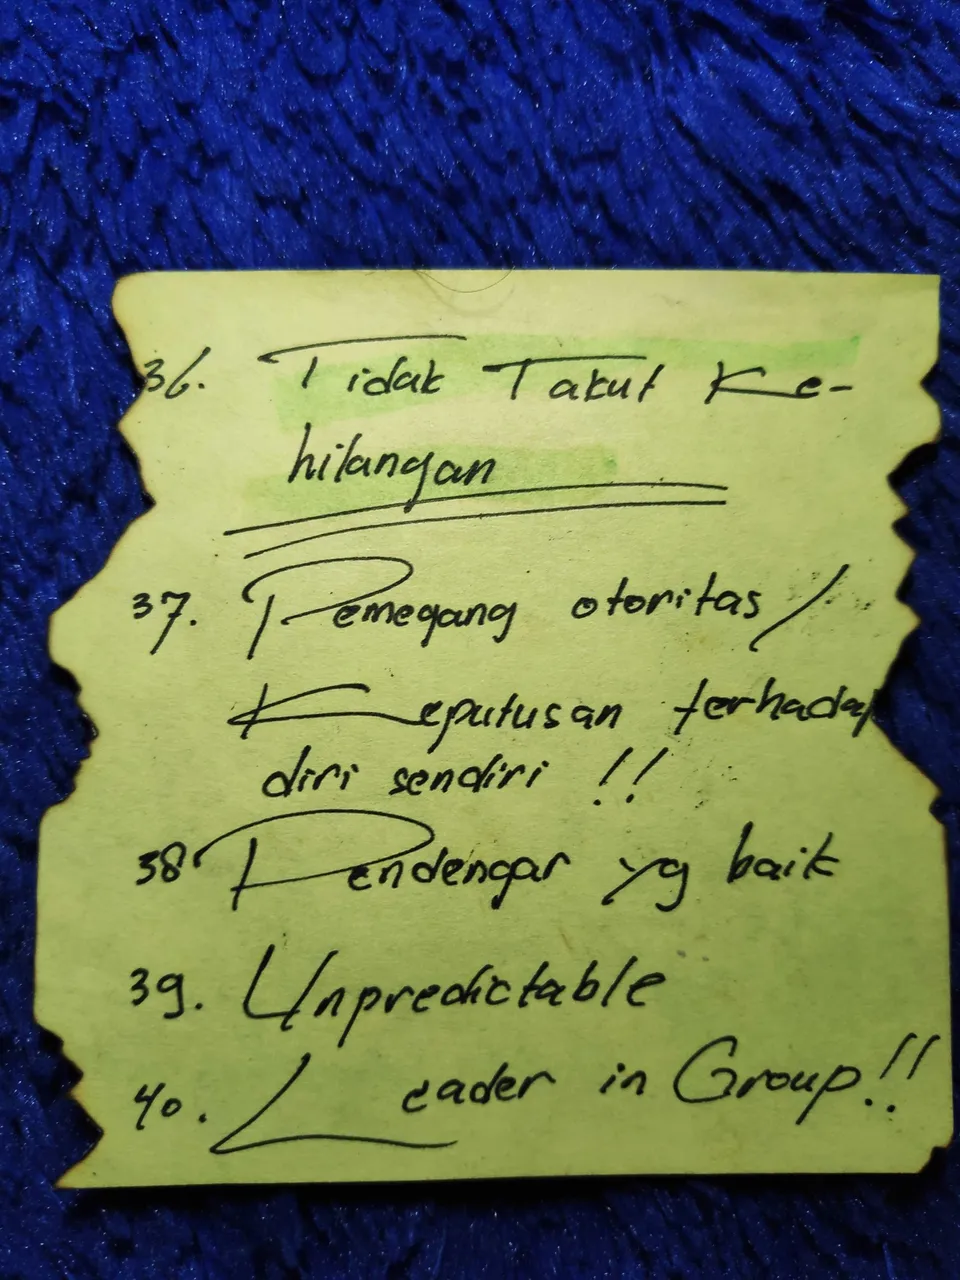 36. Tidak Takut Ke-
hilangan
37. Pemegang otoritas /
Keputusan terhadap
diri sendiri !!
38 Pendengar yg baik
39. Unpredictable
40. Leader in Group!!